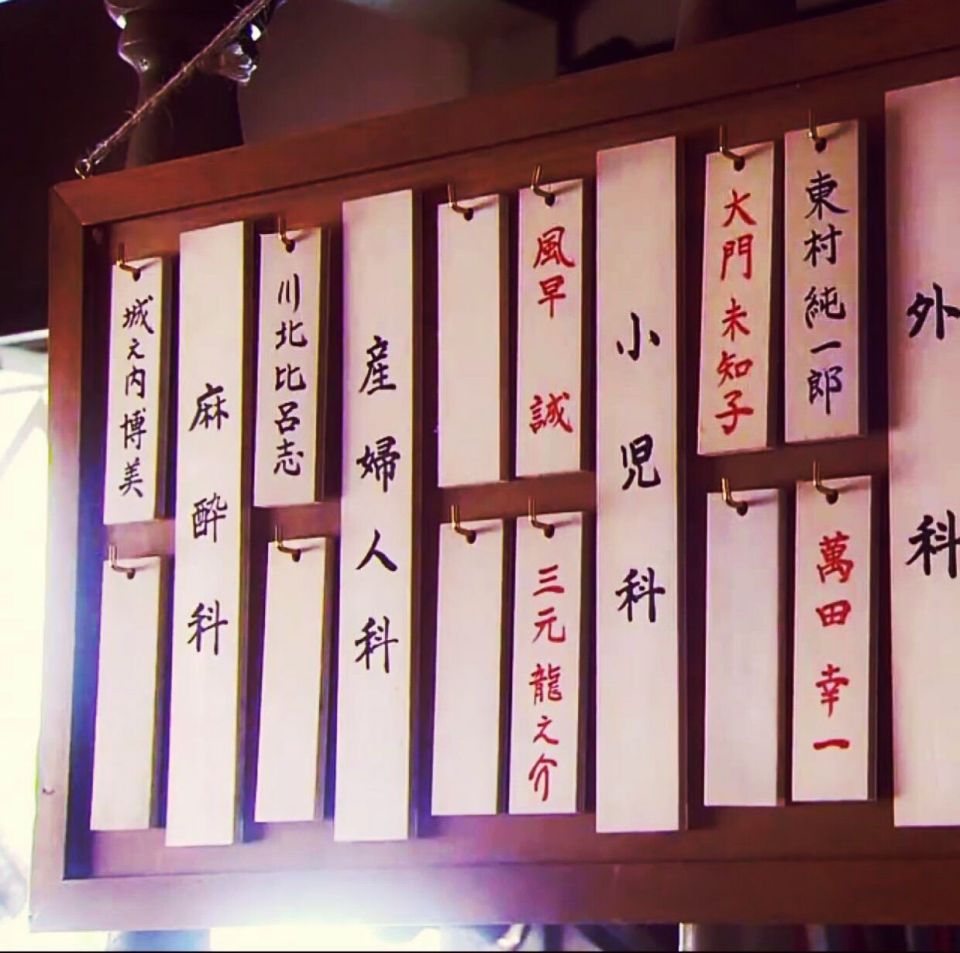 外科
東村純一郎
萬田幸一
大門未知子
小児科
風早誠
三元龍之介
産婦人科
川北比呂志
麻酔科
城之内博美